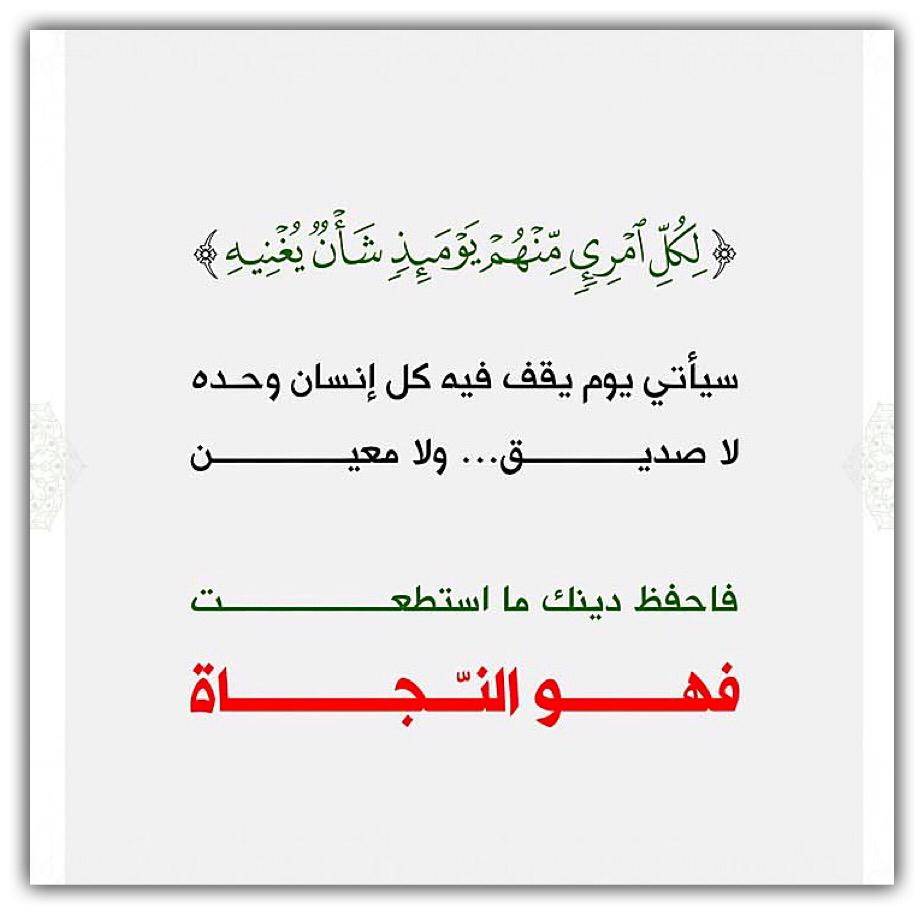 ﴿لِكُلِّ ٱمۡرِيٕٖ مِّنۡهُمۡ يَوۡمَئِذٖ شَأۡنٞ يُغۡنِيهِ﴾
سيأتي يوم يقف فيه كل إنسان وحده
لا صديق... ولا معين
فاحفظ دينك ما استطعت
فهو النّجاة